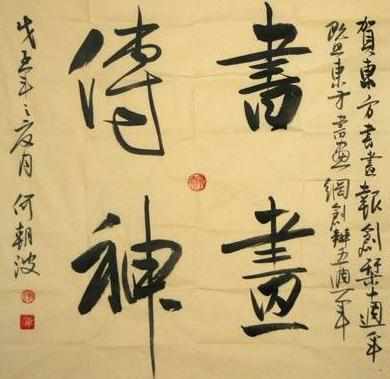 賀東方書畫報創栞十週年
暨東方書畫網創辦五週年
書畫
傳神
戊五年三月 何朝波